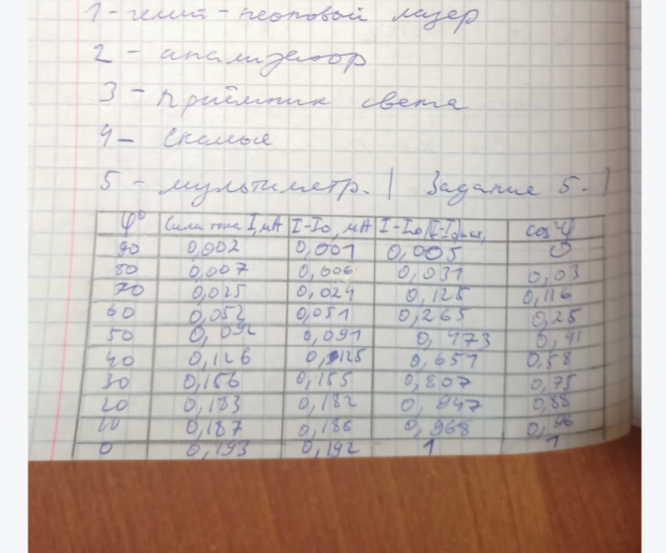 1 - гелий - неоновый лазер
2 - анализатор
3 - приёмник света
4 - скамья
5 - мультиметр. | Задание 5. |
φ° Сила тока I, мА I-I₀, мА I-I₀/(I-I₀)max, cos²φ
90 0,002 0,001 0,005 0
80 0,007 0,006 0,031 0,03
70 0,025 0,024 0,125 0,116
60 0,052 0,051 0,265 0,25
50 0,092 0,091 0,473 0,41
40 0,126 0,125 0,651 0,58
30 0,156 0,155 0,807 0,75
20 0,183 0,182 0,947 0,88
10 0,187 0,186 0,968 0,96
0 0,193 0,192 1 1